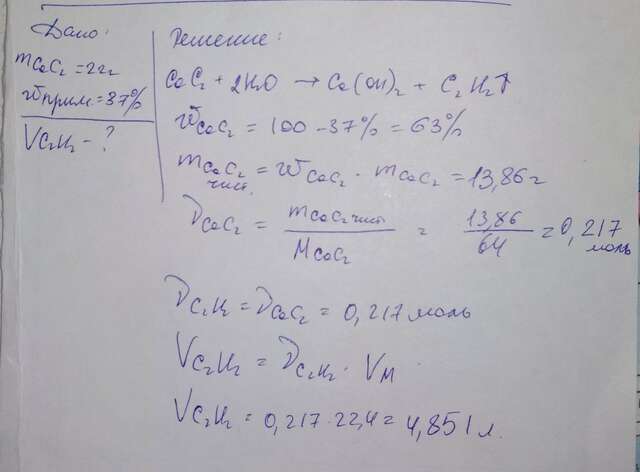 Дано:
mCaC₂ = 22г
wприм. = 37%
VC₂H₂ - ?
Решение:
CaC₂ + 2H₂O → Ca(OH)₂ + C₂H₂↑
wCaC₂ = 100 - 37% = 63%
mCaC₂ чист. = wCaC₂ · mCaC₂ = 13,86 г
νCaC₂ = mCaC₂ чист / MCaC₂ = 13,86 / 64 = 0,217 моль
νC₂H₂ = νCaC₂ = 0,217 моль
VC₂H₂ = νC₂H₂ · VM
VC₂H₂ = 0,217 · 22,4 = 4,851 л.